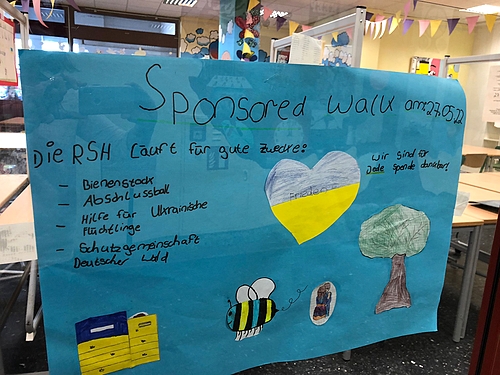 Sponsored Walk am 27.05.22
Die RSH läuft für gute Zwecke:
- Bienenstock
- Abschlussball
- Hilfe für Ukrainische
Flüchtlinge
- Schutzgemeinschaft
Deutscher Wald
Frieden
Wir sind für
Jede Spende dankbar!